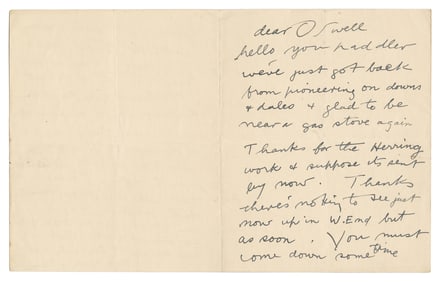 dear O Swell
hello you paddler
we've just got back
from pioneering on downs
& dales & glad to be
near a gas stove again
Thanks for the Herring
work & suppose its sent
by now. Thanks
there's nothing to see just
now up in W. End but
as soon. You must
come down some time